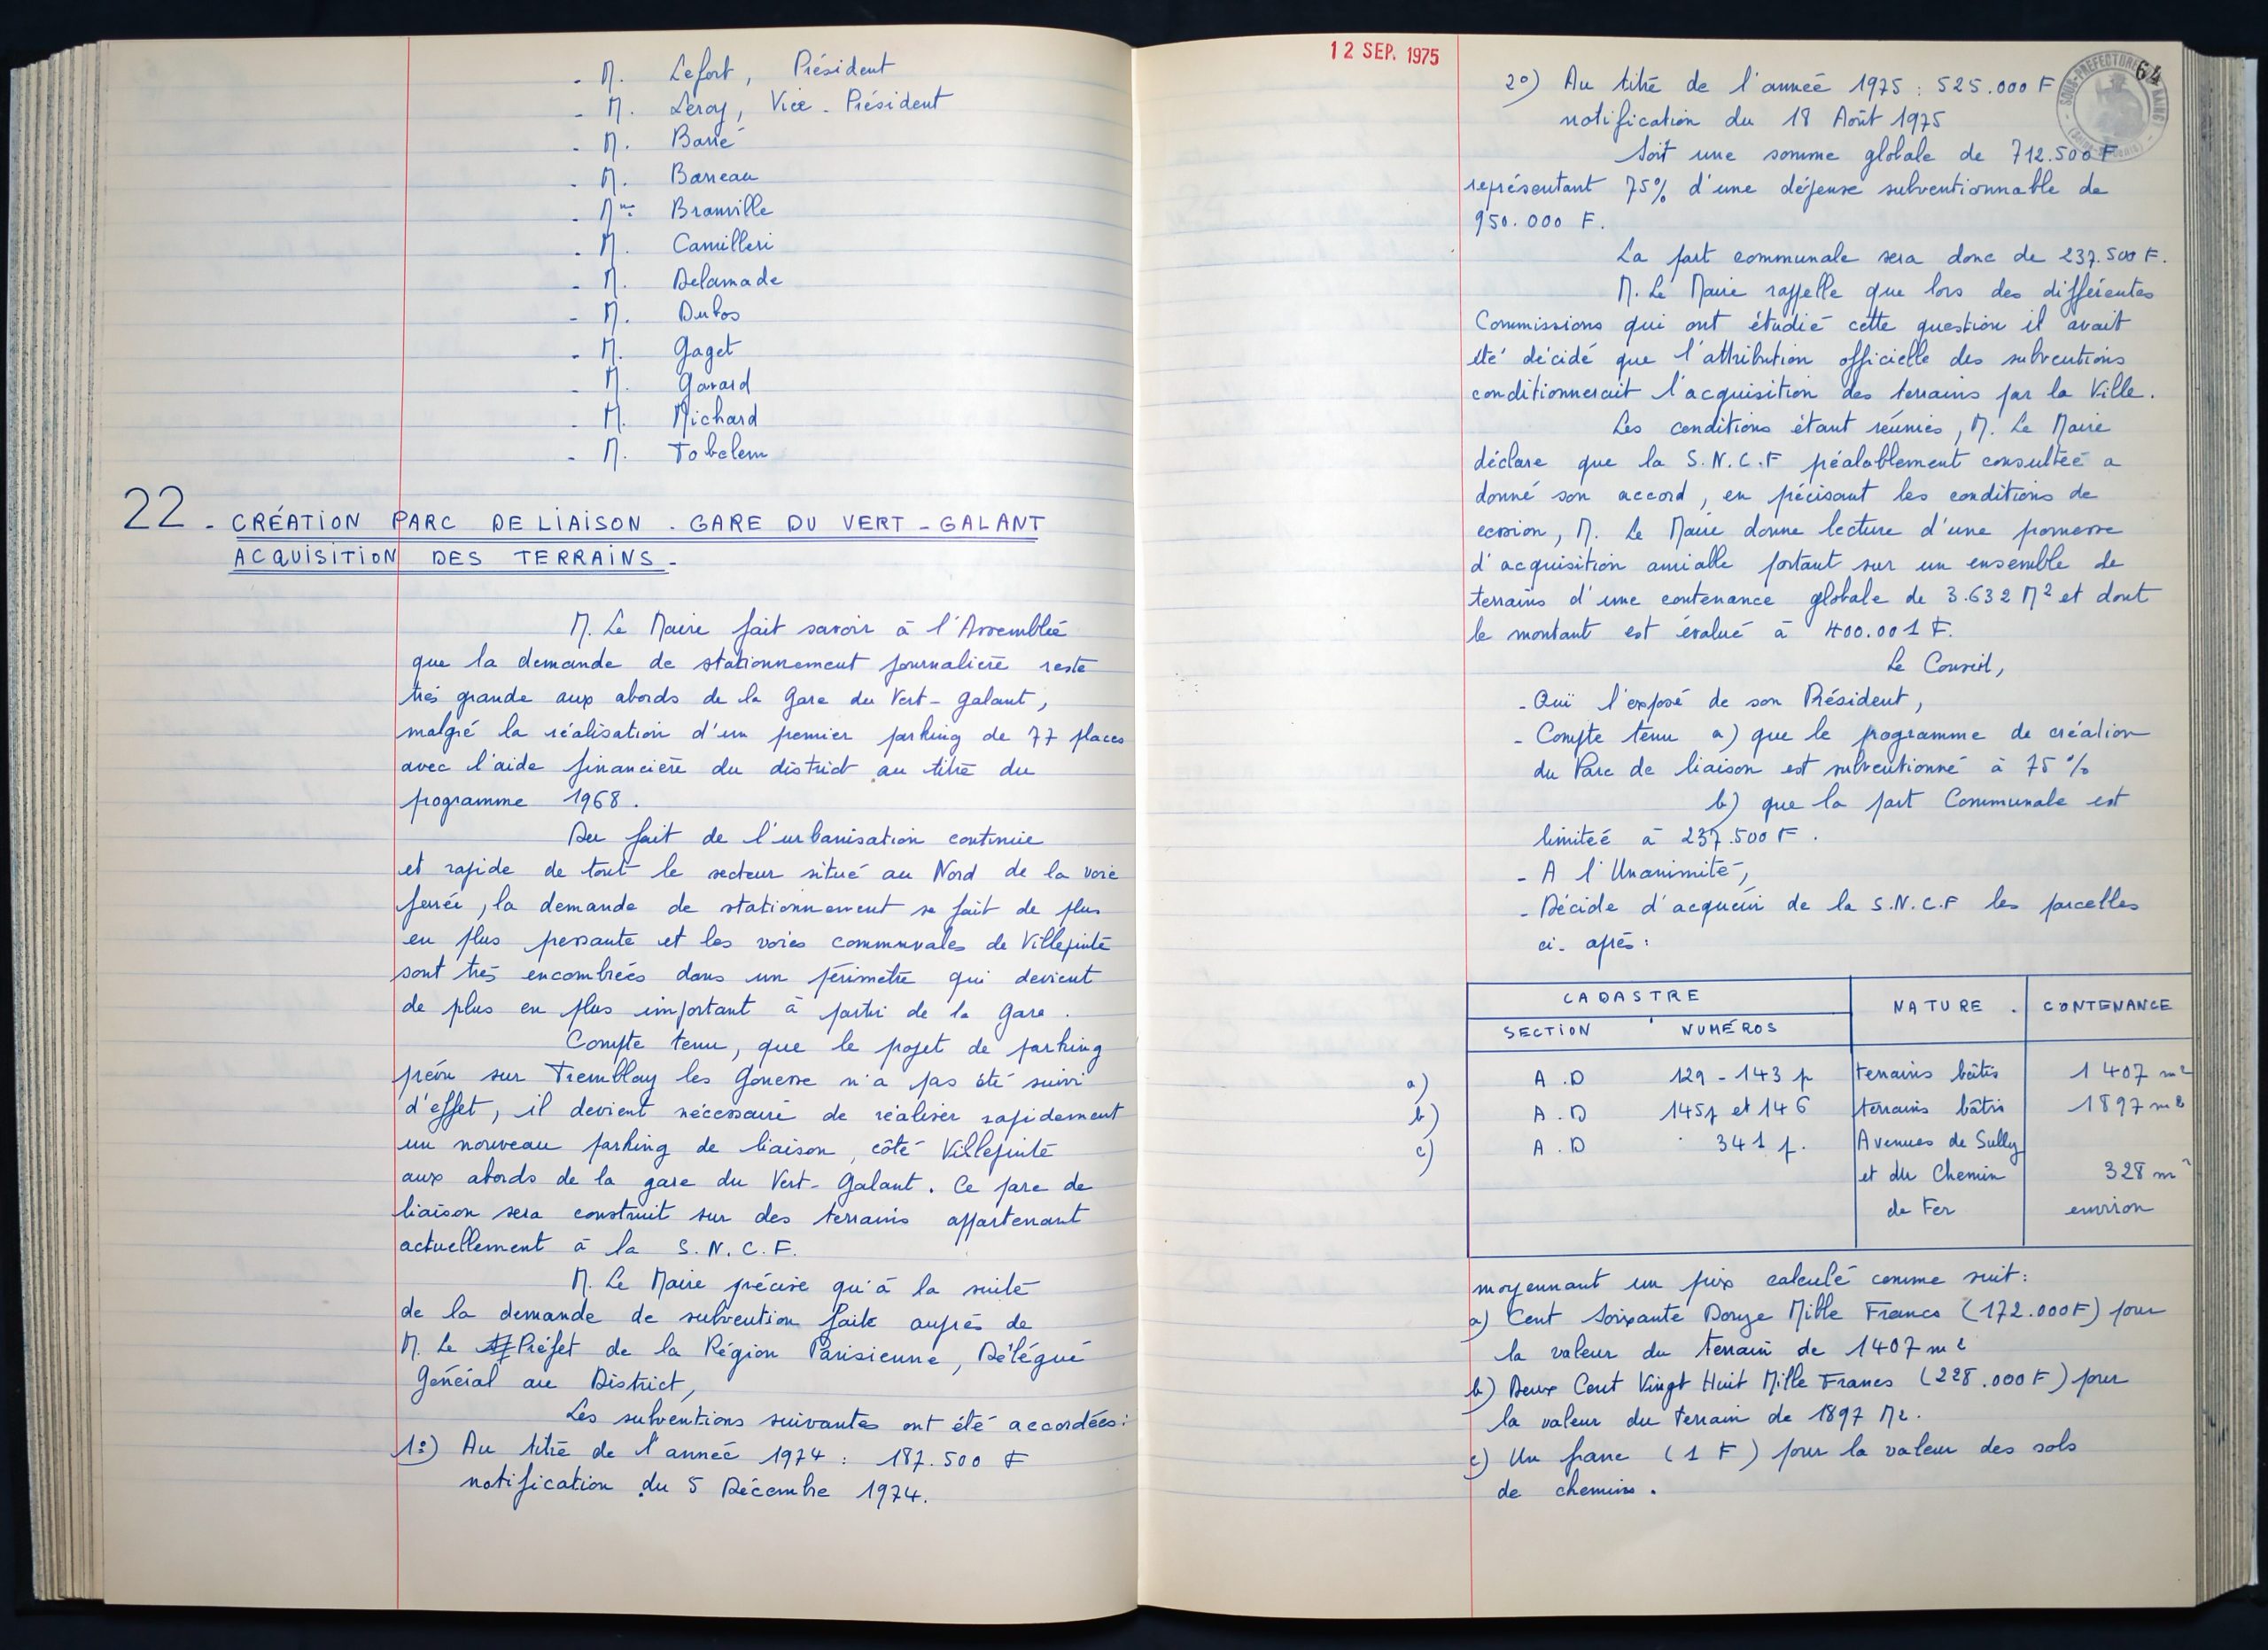 - M. Lefort, Président
- M. Leroy, Vice-Président
- M. Barré
- M. Barreau
- Mme Branville
- M. Camilleri
- M. Delamade
- M. Dubos
- M. Gaget
- M. Gavard
- M. Michard
- M. Tobelem
22 - CRÉATION PARC DE LIAISON - GARE DU VERT-GALANT
ACQUISITION DES TERRAINS -
M. Le Maire fait savoir à l'Assemblée
que la demande de stationnement journalière reste
très grande aux abords de la Gare du Vert-Galant,
malgré la réalisation d'un premier parking de 77 places
avec l'aide financière du district au titre du
programme 1968.
Du fait de l'urbanisation continue
et rapide de tout le secteur situé au Nord de la voie
ferrée, la demande de stationnement se fait de plus
en plus pressante et les voies communales de Villepinte
sont très encombrées dans un périmètre qui devient
de plus en plus important à partir de la Gare.
Compte tenu, que le projet de parking
prévu sur Tremblay les Gonesse n'a pas été suivi
d'effet, il devient nécessaire de réaliser rapidement
un nouveau parking de liaison, côté Villepinte
aux abords de la gare du Vert-Galant. Ce parc de
liaison sera construit sur des terrains appartenant
actuellement à la S.N.C.F.
M. Le Maire précise qu'à la suite
de la demande de subvention faite auprès de
M. Le Préfet de la Région Parisienne, Délégué
Général au District,
Les subventions suivantes ont été accordées :
1°) Au titre de l'année 1974 : 187.500 F
notification du 5 Décembre 1974.
12 SEP. 1975
64
SOUS-PREFECTURE
2°) Au titre de l'année 1975 : 525.000 F
notification du 18 Août 1975
Soit une somme globale de 712.500 F
représentant 75% d'une dépense subventionnable de
950.000 F.
La part communale sera donc de 237.500 F.
M. Le Maire rappelle que lors des différentes
Commissions qui ont étudié cette question il avait
été décidé que l'attribution officielle des subventions
conditionnerait l'acquisition des terrains par la Ville.
Les conditions étant réunies, M. Le Maire
déclare que la S.N.C.F préalablement consultée a
donné son accord, en précisant les conditions de
cession, M. Le Maire donne lecture d'une promesse
d'acquisition amiable portant sur un ensemble de
terrains d'une contenance globale de 3.632 M2 et dont
le montant est évalué à 400.001 F.
Le Conseil,
- Ouï l'exposé de son Président,
- Compte tenu a) que le programme de création
du Parc de liaison est subventionné à 75 %
b) que la part Communale est
limitée à 237.500 F.
- A l'Unanimité,
- Décide d'acquérir de la S.N.C.F les parcelles
ci-après :
CADASTRE NATURE. CONTENANCE
SECTION NUMÉROS
a) A.D 129 - 143 p terrains bâtis 1 407 m2
b) A.D 145p et 146 terrains bâtis 1897 m2
c) A.D 341 p. Avenues de Sully
et du Chemin 328 m2
de Fer environ
moyennant un prix calculé comme suit :
a) Cent Soixante Douze Mille Francs (172.000F) pour
la valeur du terrain de 1407 m2
b) Deux Cent Vingt Huit Mille Francs (228.000F) pour
la valeur du terrain de 1897 M2.
c) Un franc (1 F) pour la valeur des sols
de chemins.